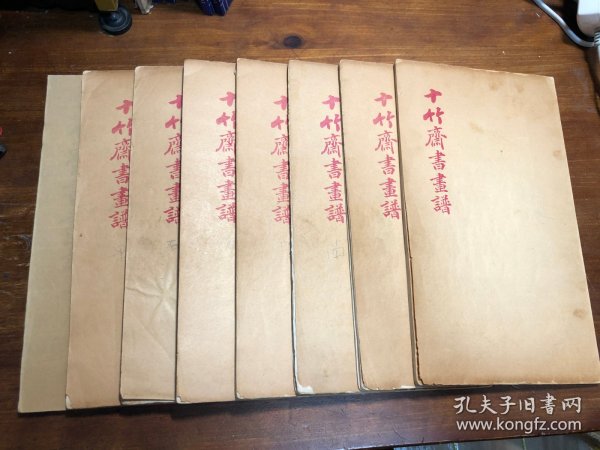 十竹齋書畫譜
十竹齋書畫譜
十竹齋書畫譜
十竹齋書畫譜
十竹齋書畫譜
十竹齋書畫譜
十竹齋書畫譜
孔夫子旧书网
www.kongfz.com